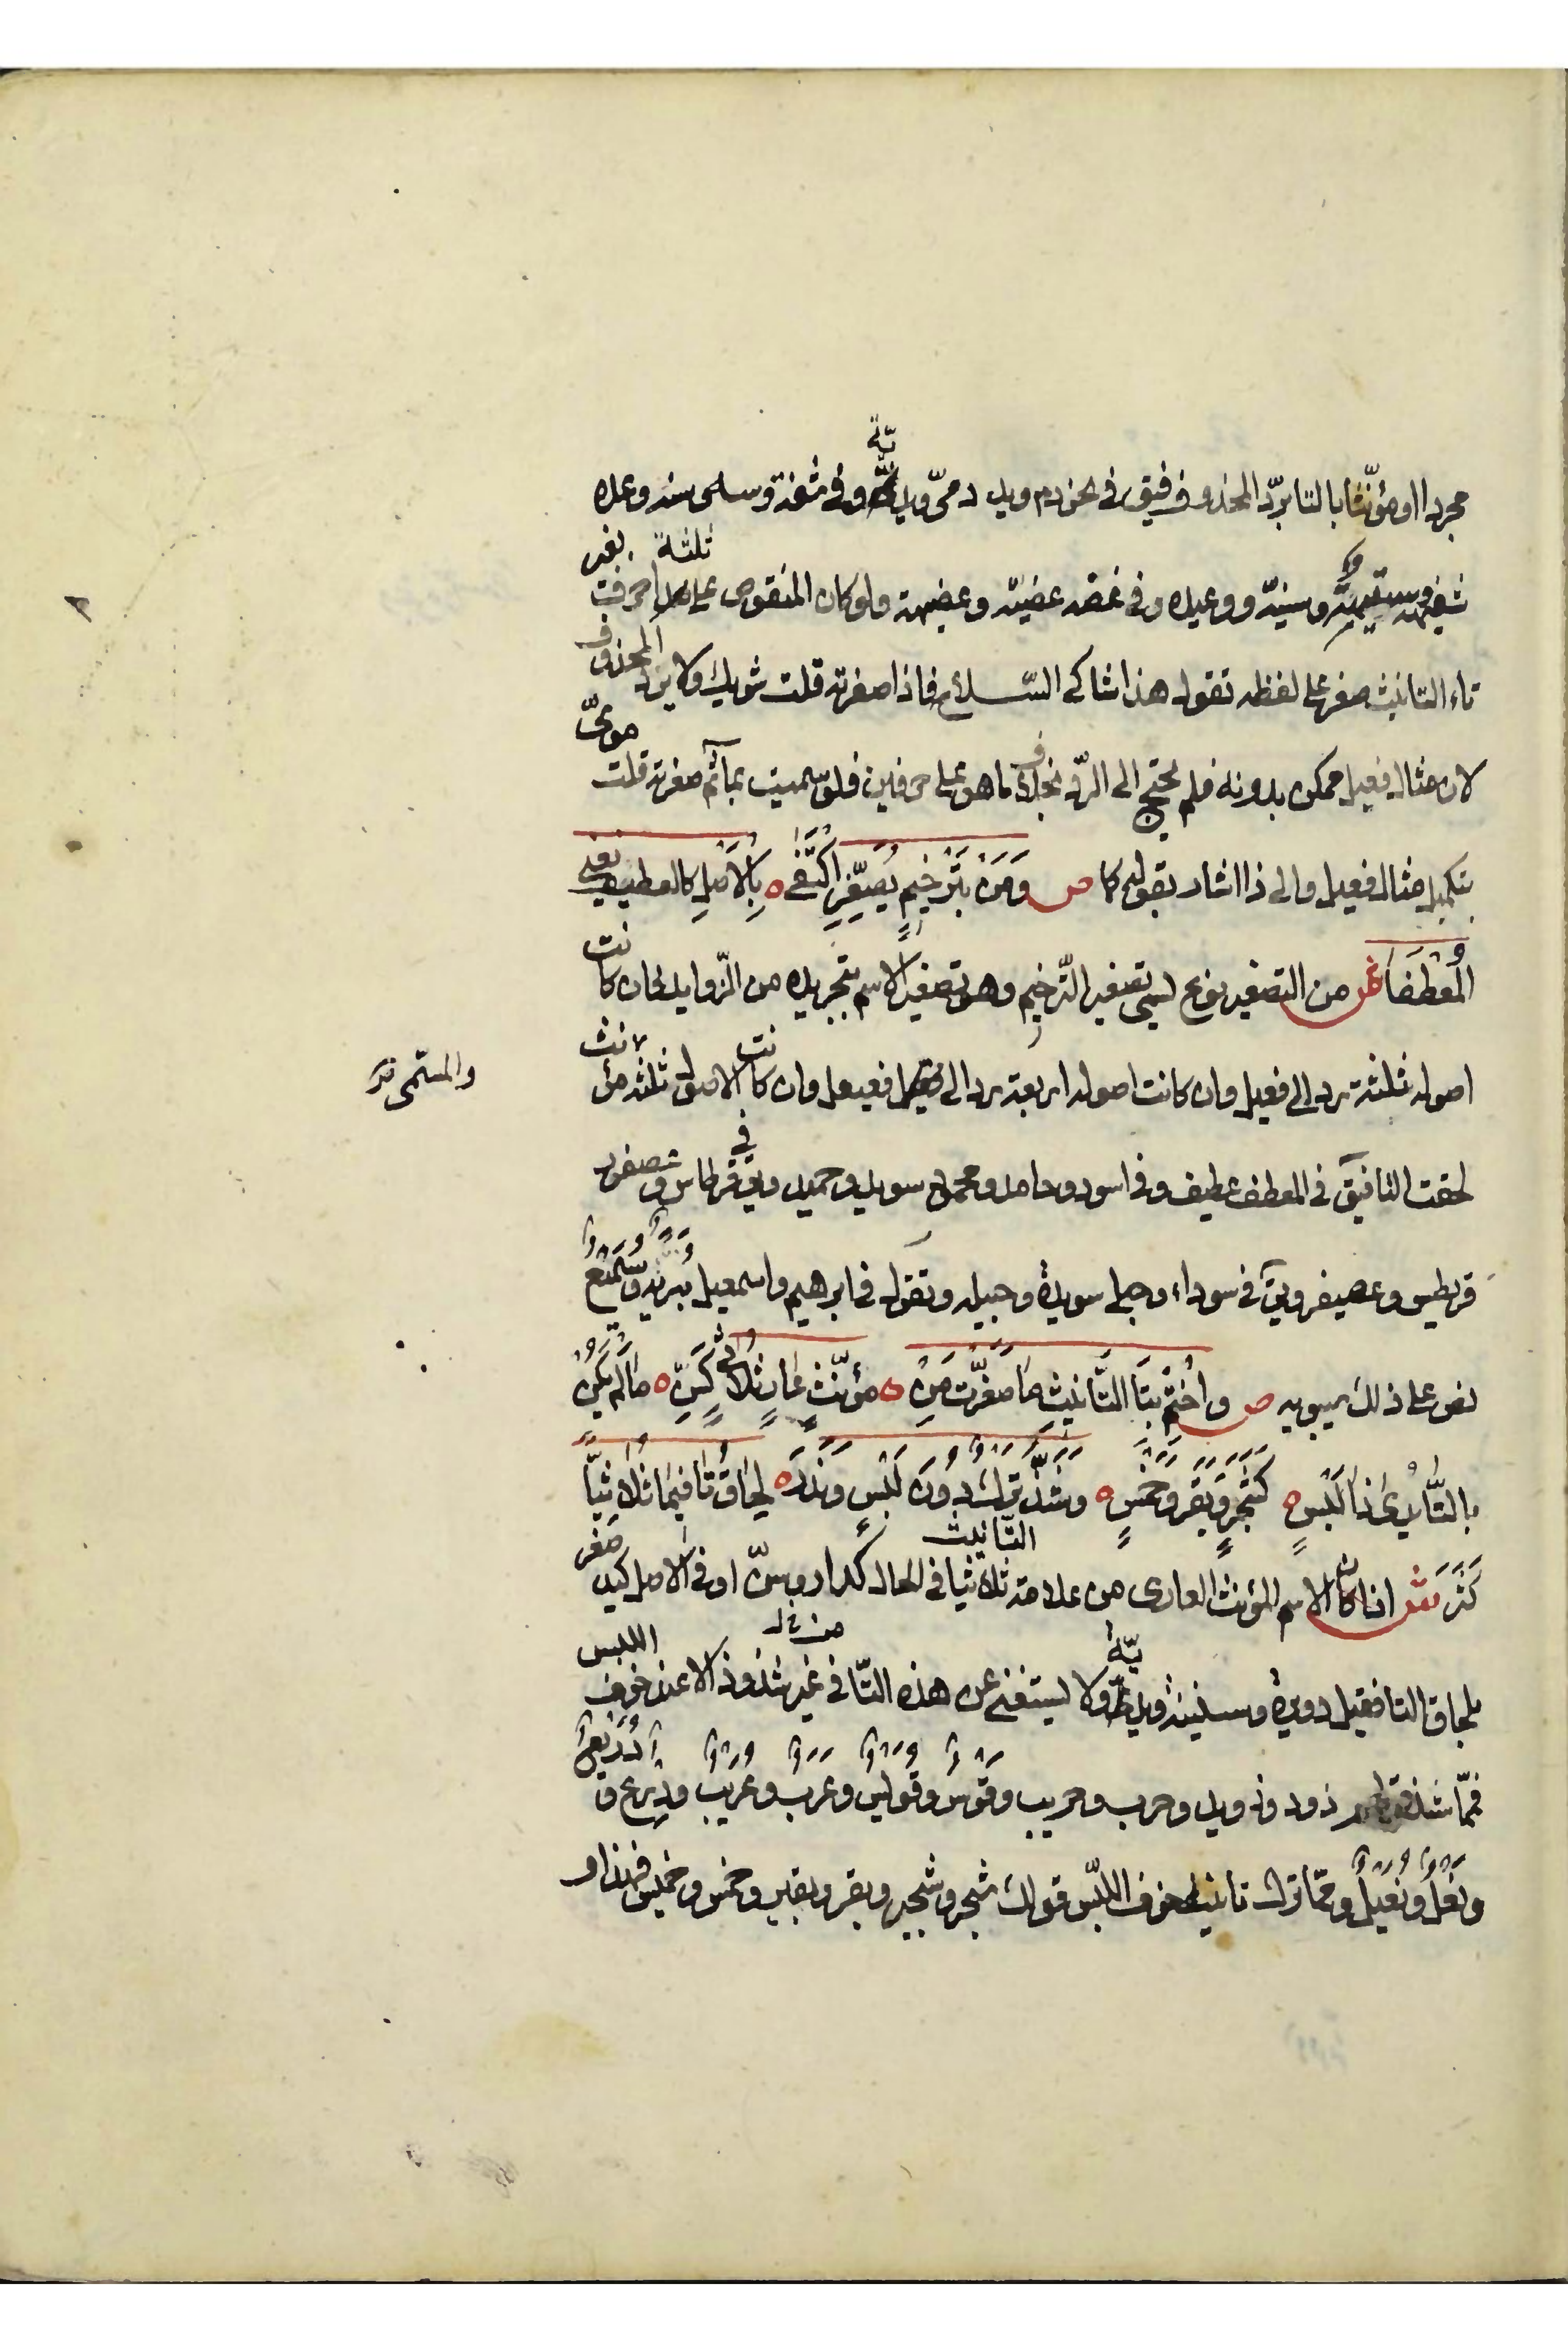 مجردا او مؤنثا بالتا برد المحذوف فيق في نحو دم ويد دمي ويدية وفي شفة وسنة وعدة
شفيهة وسنية ووعيدة وفي عضة عضية وعضيهة ولو كان المنقوص على ثلثة احرف بغير
تاء التانيث صغر على لفظه تقول هذا شاك السلاح فاذا صغرته قلت شويك ولا يرد المحذوف
لان مثال فعيل ممكن بدونه فلم يحتج الى الرد بخلاف ما هو على حرفين فلو سميت بما ثم صغرته قلت موي
بتكميل مثال فعيل والى ذا اشار بقوله كما ص وَمَن بِتَرْخِيمٍ يُصَغِّر اكتَفى ه بِالاَصلِ كالعطيف يعني
المعطفا ش من التصغير نوع يسمى تصغير الترخيم وهو تصغير الاسم بتجريده من الزوايد فان كانت
اصوله ثلثة رد الى فعيل وان كانت اصوله اربعة رد الى فعيعل وان كانت الاصول ثلثة مؤنث
والمسمى
لحقت التا فيق في المعطف عطيف وفي اسود وحامد ومحمود سويد وحميد وفي قرطاس وعصفور
قريطس وعصيفر ويق في سوداء وحبلى سويدة وحبيلة وتقول في ابرهيم واسمعيل بُرَيه وسُمَيع
نص على ذلك سيبويه ص واختم بتا التانيث ما صغرت من ه مؤنث عار ثلاثي كسن ه ما لم يكن
بالتا يرى ذا لبس ه كشجر وبقر وخمس ه وشذ ترك دون لبس وندر ه لحاق تا فيما ثلاثيا
كَثَر ش اذا كان الاسم المؤنث العارى من علامة التانيث ثلاثيا في الحال كدار وسن او في الاصل كيد صغر
بلحاق التا فقيل دويرة وسنينة ويدية ولا يستغنى عن هذه التا في غير شذوذ الا عند خوف اللبس
فما شذ قولهم ذود وذويد وحرب وحريب وقوس وقويس وعرب وعريب ودرع ودريع
ونعل ونعيل ومما ترك تانيثه خوف اللبس قولك شجر وشجير وبقر وبقير وخمس وخميس فهذا و